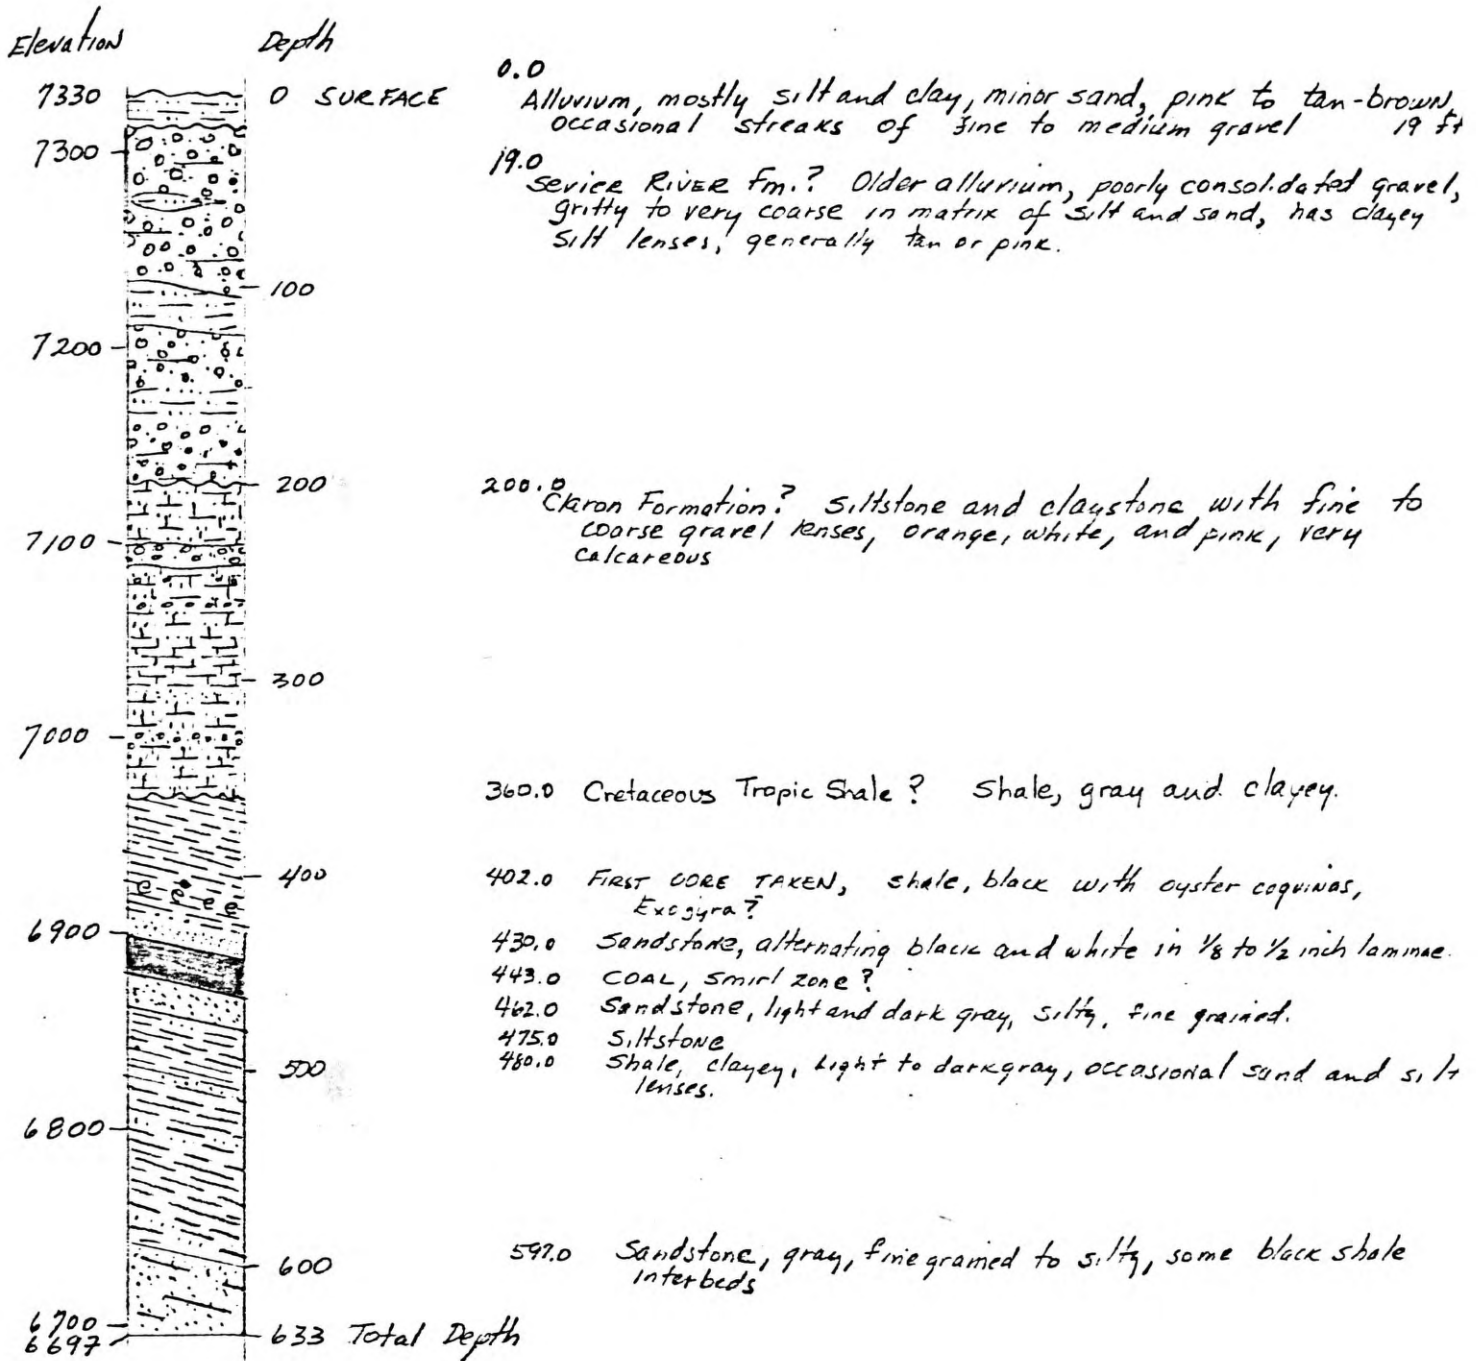 Elevation Depth
7330 0 SURFACE
7300
100
7200
200
7100
300
7000
400
6900
500
6800
600
6700
6697 633 Total Depth
0.0
Alluvium, mostly silt and clay, minor sand, pink to tan-brown,
occasional streaks of fine to medium gravel 19 ft
19.0
Sevier RIVER Fm.? Older alluvium, poorly consolidated gravel,
gritty to very coarse in matrix of silt and sand, has clayey
silt lenses, generally tan or pink.
200.0
Claron Formation? Siltstone and claystone with fine to
coarse gravel lenses, orange, white, and pink, very
calcareous
360.0 Cretaceous Tropic Shale? Shale, gray and clayey.
402.0 FIRST CORE TAKEN, shale, black with oyster coquinas,
Exogyra?
430.0 Sandstone, alternating black and white in 1/8 to 1/2 inch laminae.
443.0 COAL, Smirl zone?
462.0 Sandstone, light and dark gray, silty, fine grained.
475.0 Siltstone
480.0 Shale, clayey, light to dark gray, occasional sand and silt
lenses.
597.0 Sandstone, gray, fine grained to silty, some black shale
interbeds